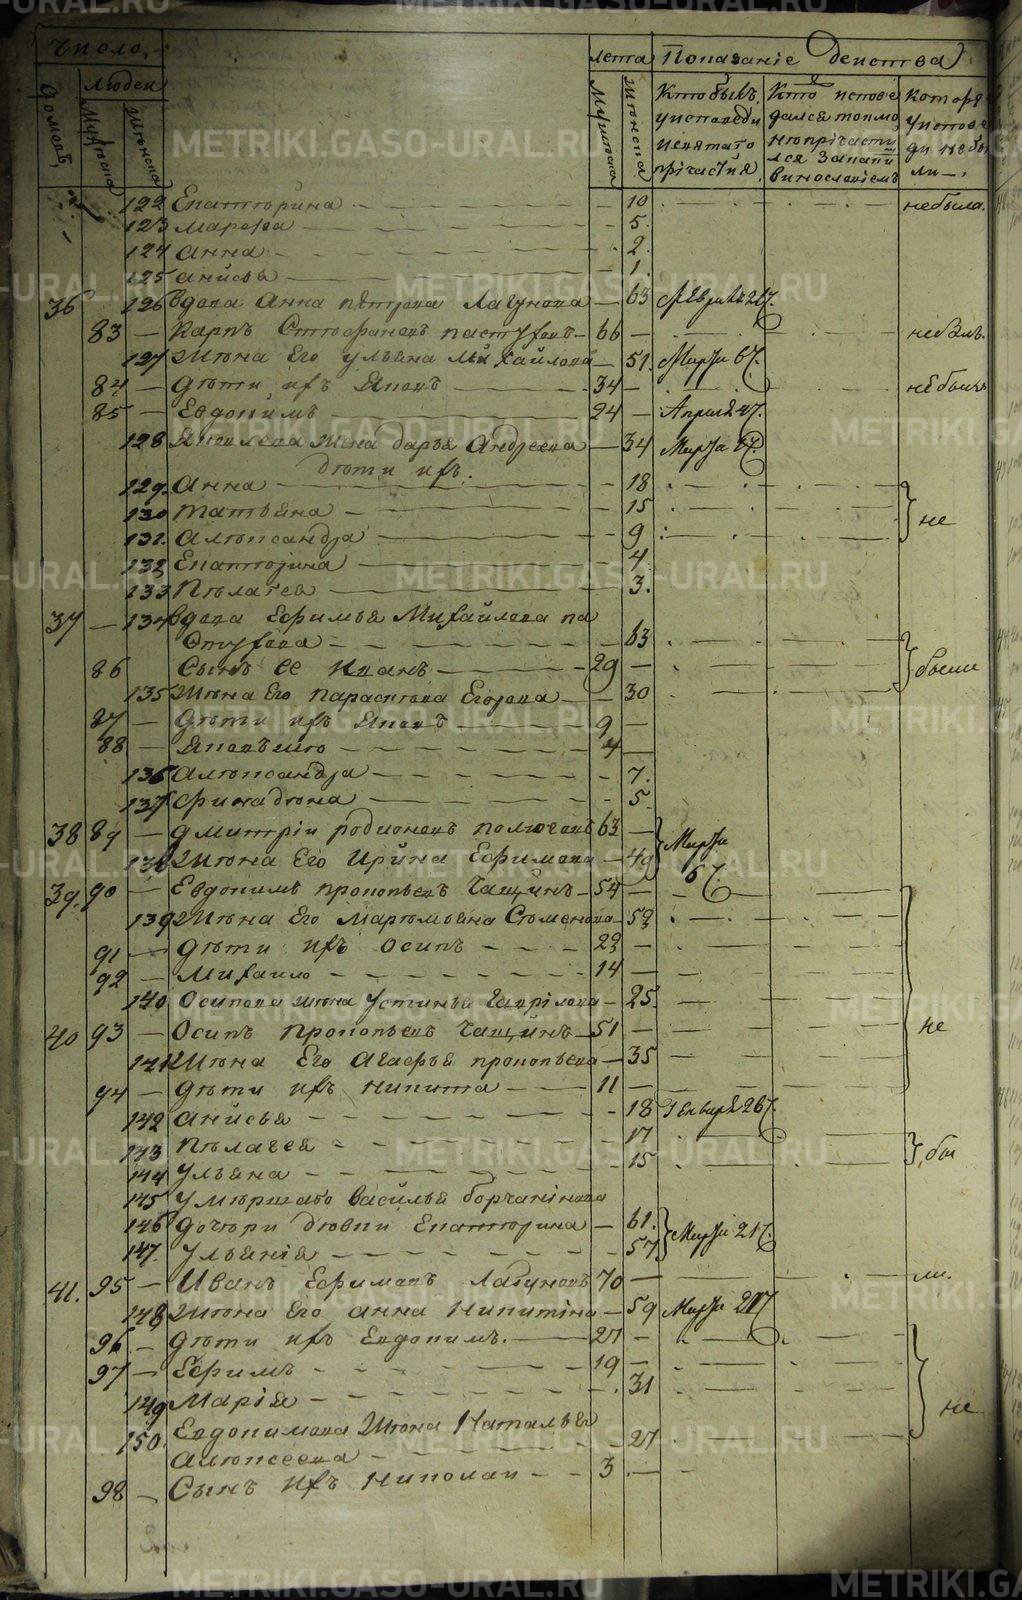 Число
лета Показание действа
людей
Домовъ
Мужеска
Женска
Мужеска
Женска
Кто былъ
у исповеди
и святаго
причастия
Кто испове
дался токмо
не причасти
лся
винословиемъ
которыя
у испове
ди не бы
ли
122 Екатерина 10 не была.
123 Марфа 5.
124 Анна 2.
125 Анисья 1.
36 126 вдова Анна Петрова Лагунова 63
83 Карпъ Стефановъ Пастуховъ 66
127 Жена Его Ульяна Михайлова 51. Марта 6
84 Дети ихъ Яковъ 34
85 Евдокимъ 24 Апреля
128 Яковлева жена Дарья Андреева 34 Марта
Дети ихъ.
129. Анна 18
130 Татьяна 15 не
131. Александра 9
132 Екатерина 4.
133 Пелагея 3.
37 134 вдова Ефимья Михайлова Па
стухова 63
86 Сынъ Ее Иванъ 29 были
135 Жена Его Параскева Егорова 30
87 Дети ихъ Яковъ 9
88 Яковъ же 4
136 Александра 7.
137 Финадена 5.
38 89 Дмитрий Родионовъ 63 Марта
138 Жена Его Ирина Ефимова 49 6
39. 90 Евдокимъ Прокопьевъ Чащинъ 54
139 Жена Его Маремьяна Семенова 52
91 Дети ихъ Осипъ 22
92 Михайло 14
140 Осипова жена Устинья Гаврилова 25.
40 93 Осипъ Прокопьевъ Чащинъ 51 не
141 Жена Его Агафья Прокопьева 35
94 Дети ихъ Никита 11
142 Анисья 18
143 Пелагея 17 бы
144 Ульяна 15
145 Умершаго Василья
146 Дочери девки Екатерина 61. Марта
147. Ульяния 57
41. 95 Иванъ Ефимовъ Лагуновъ 70 ли.
148 Жена Его Анна Никитина 59 Марта
96 Дети ихъ Евдокимъ. 27
97 Ефимъ 19
149 Мария 31
150. Евдокимова Жена Наталья не
Алексеева 27
98 Сынъ ихъ Николай 3
METRIKI.GASO-URAL.RU